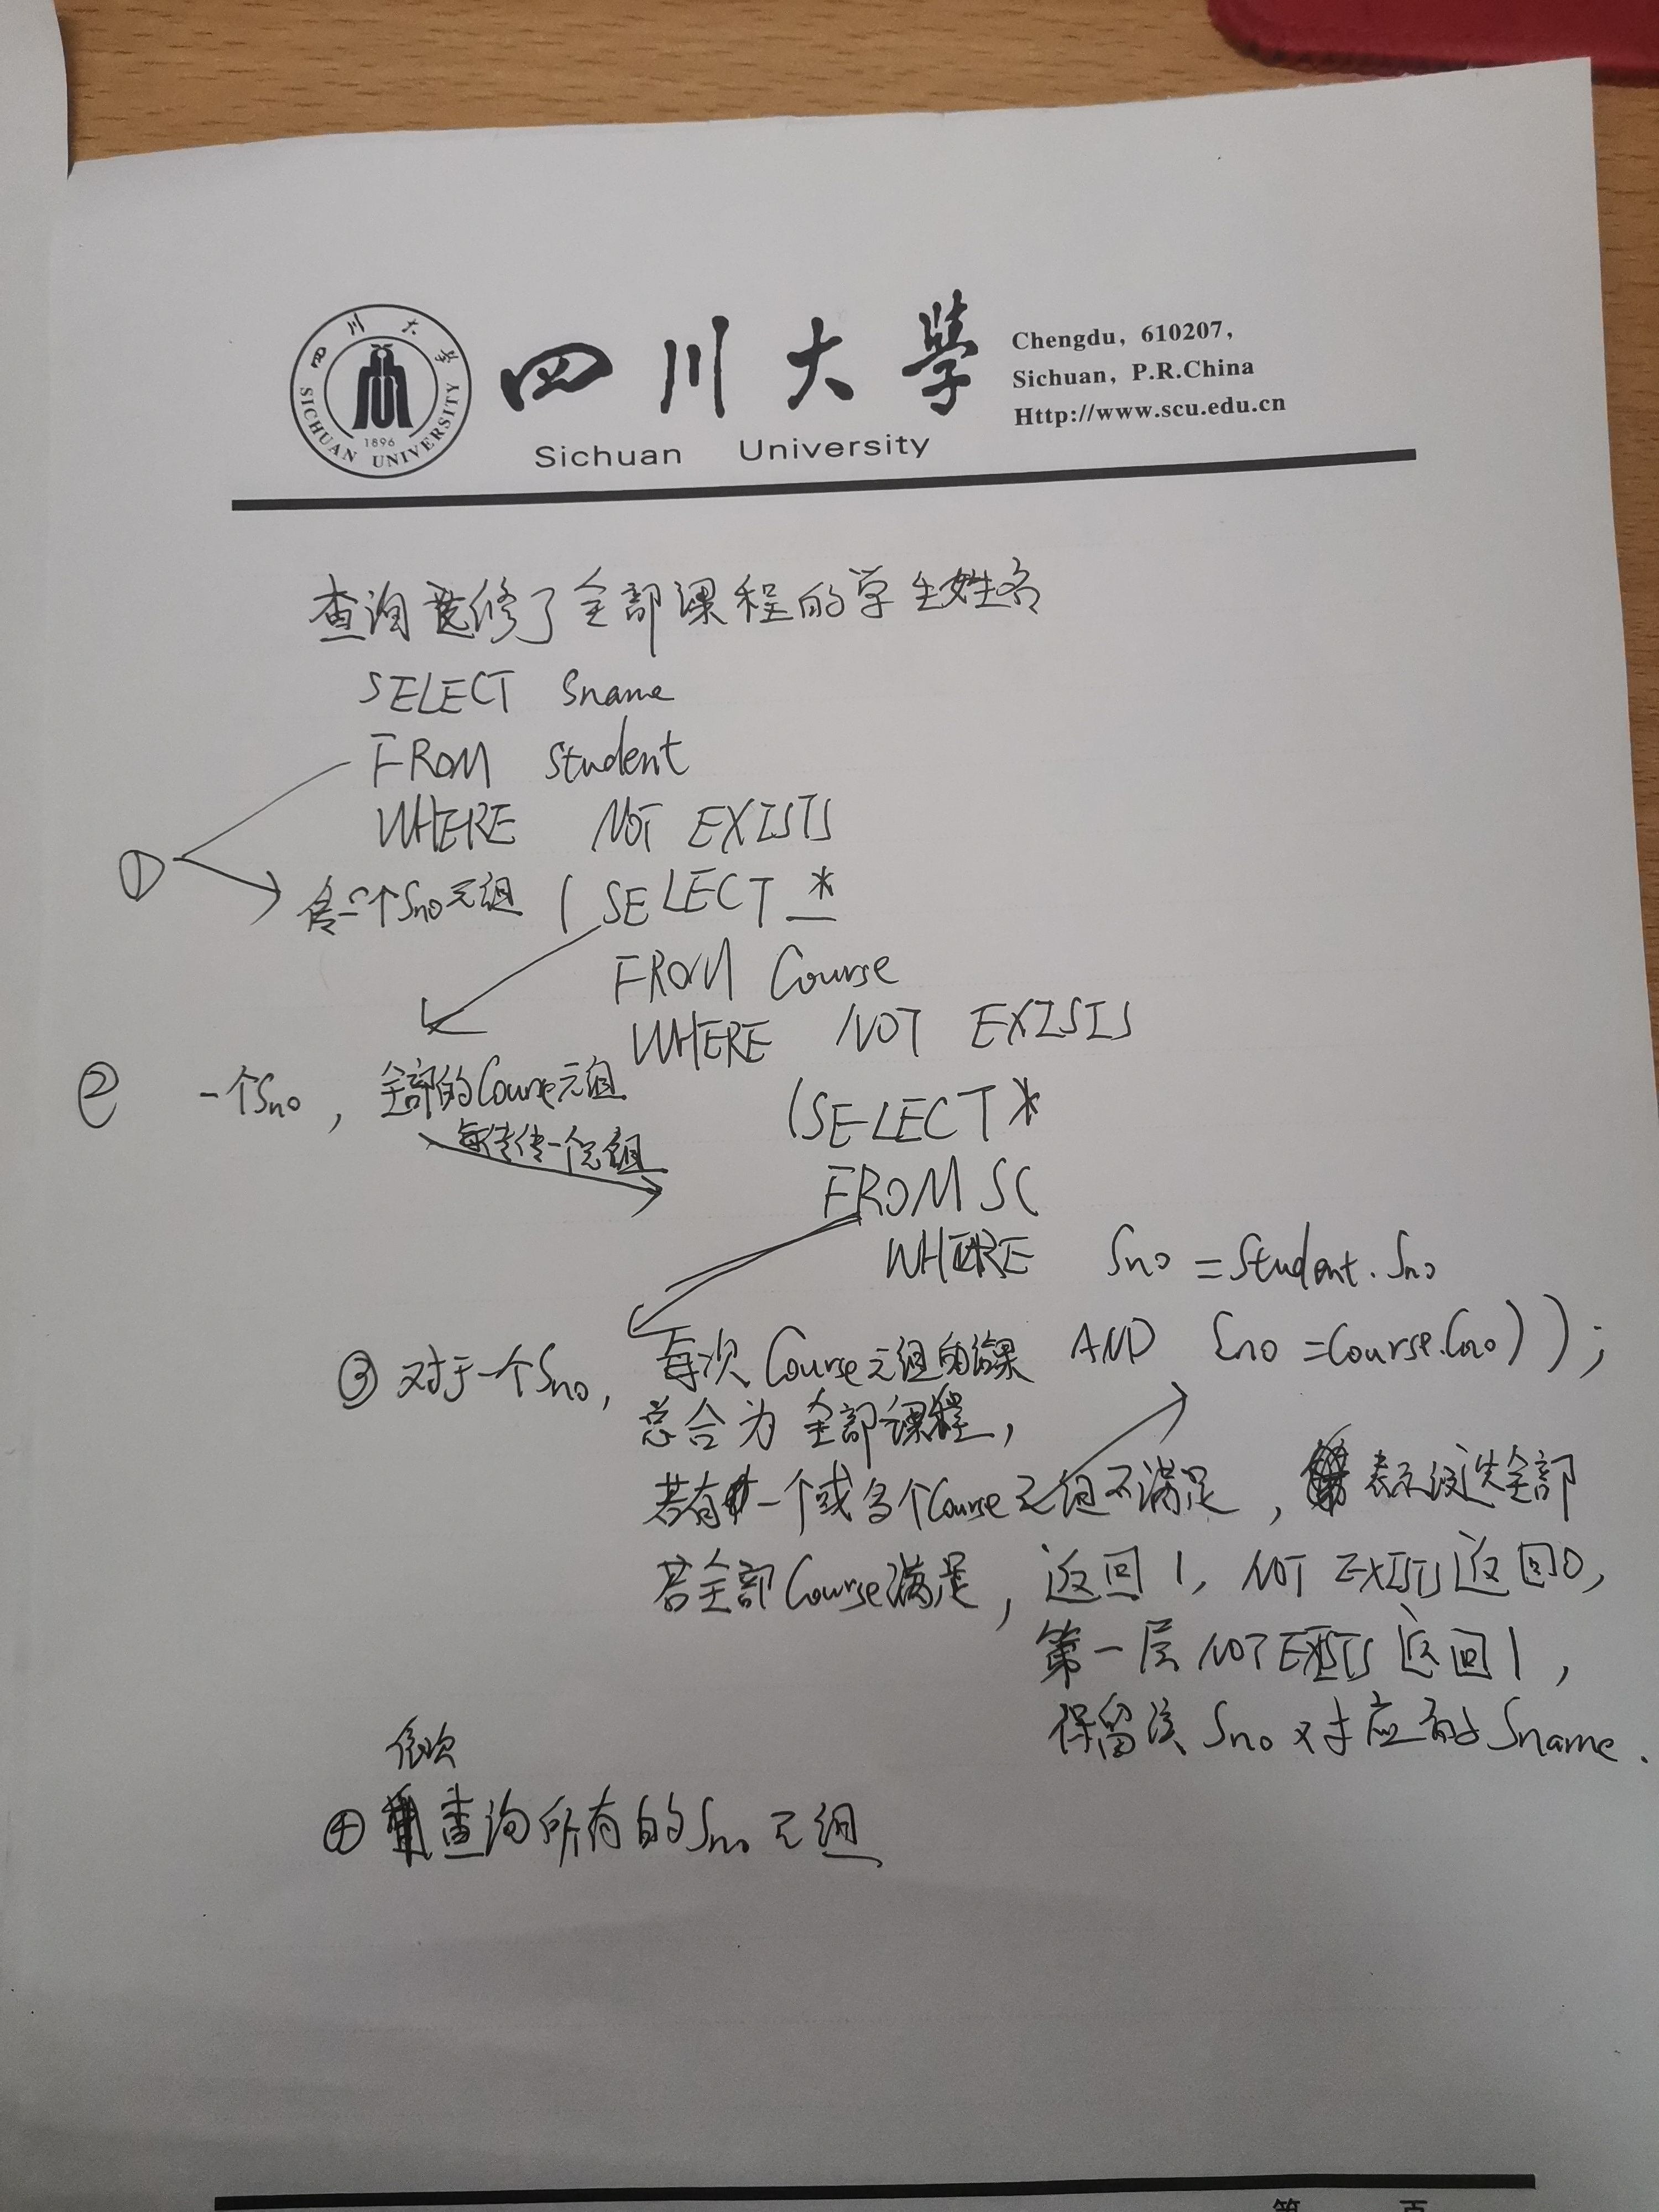 四川大学
SICHUAN UNIVERSITY
1896
四川大學
Sichuan University
Chengdu, 610207,
Sichuan, P.R.China
Http://www.scu.edu.cn
查询选修了全部课程的学生姓名
SELECT Sname
FROM Student
WHERE NOT EXISTS
① 含一个Sno元组 (SELECT *
FROM Course
WHERE NOT EXISTS
② 一个Sno, 全部的Course元组
每次传一个元组
(SELECT *
FROM SC
WHERE Sno = Student.Sno
AND Cno = Course.Cno));
③ 对于一个Sno, 每次Course元组的结果
总合为全部课程,
若有一个或多个Course元组不满足, 表示没选全部
若全部Course满足, 返回1, NOT EXISTS返回0,
第一层NOT EXISTS返回1,
保留该Sno对应的Sname.
依次
④ 查询所有的Sno元组
第 页